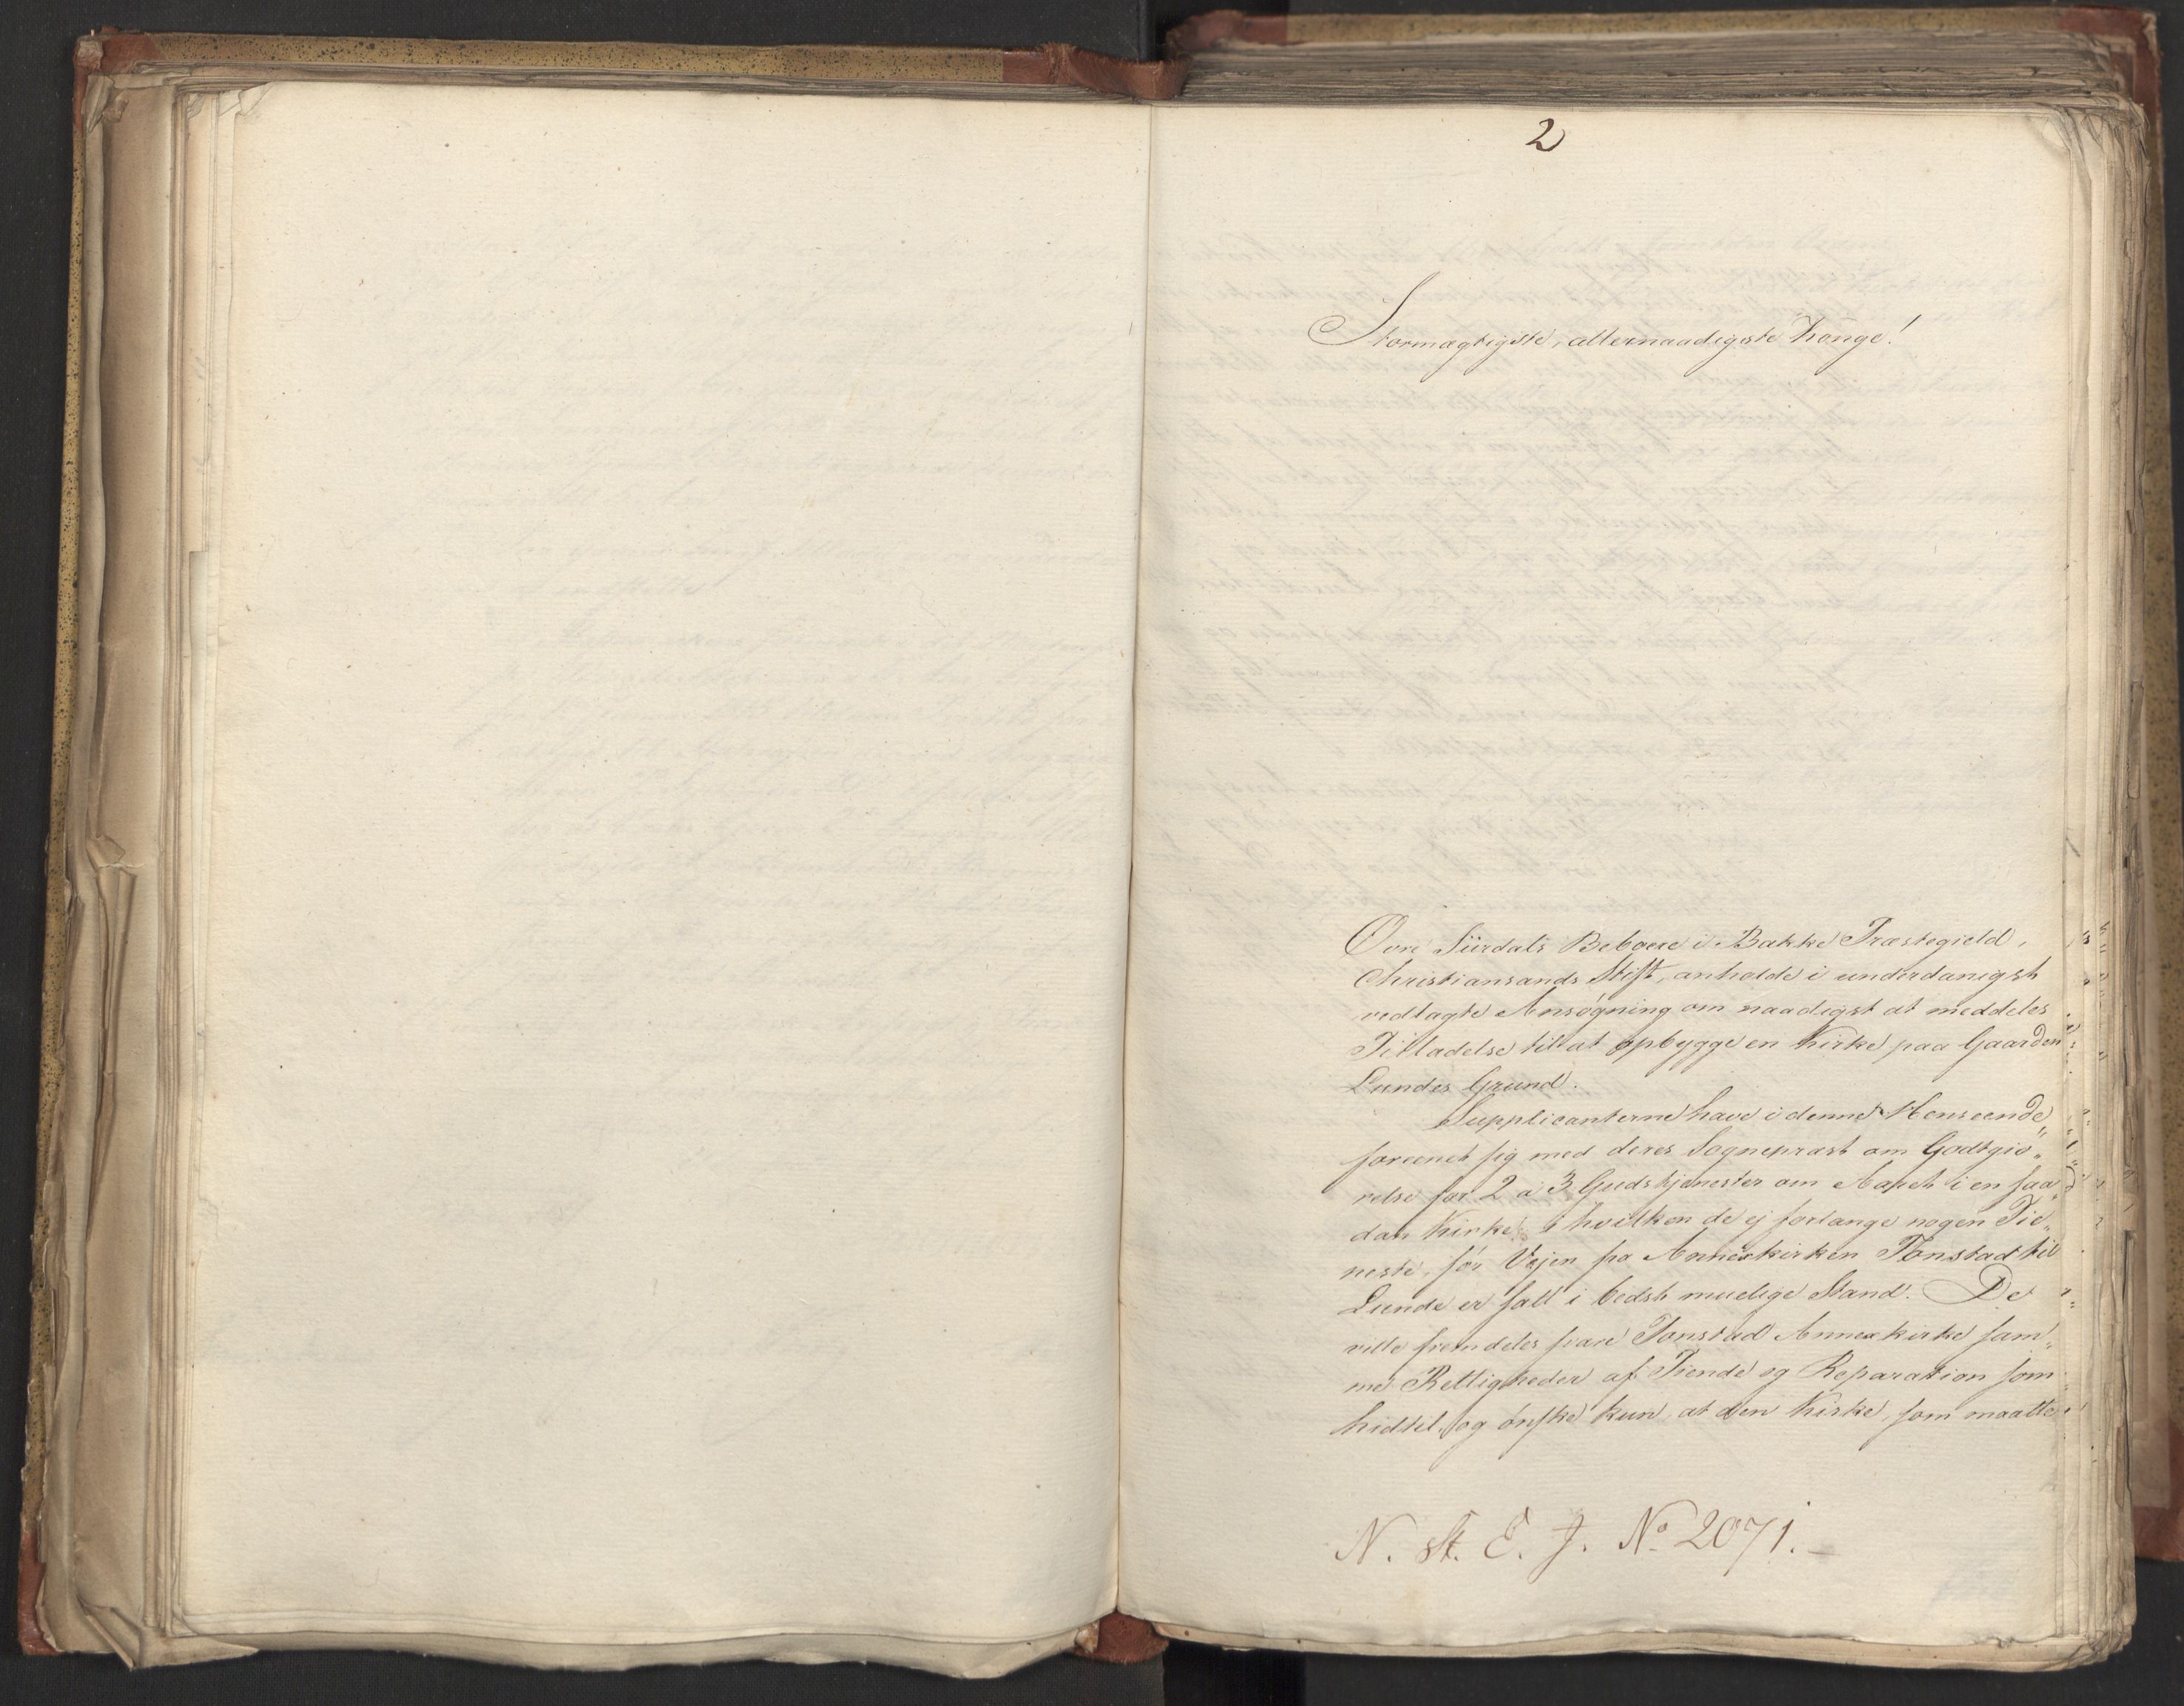 2
Stormægtigste, allernaadigste Konge!
Övre Siirdals Beboere i Bakke Præstegield,
Christiansands Stift, anholde i underdanigst
vedlagte Ansøgning om naadigst at meddeles
Tilladelse til at opbygge en Kirke paa Gaarden
Lundes Grund.
Supplicanterne have i denne Henseende
foreenet sig med deres Sognepræst om Godtgiö„
relse for 2 a 3 Gudstjenester om Aaret i en saa„
dan Kirke, i hvilken de ej forlange nogen Tie„
neste, för Vejen fra Annexkirken Tonstad til
Lunde er satt i bedst muelige Stand. De
ville fremdeles svare Tonstad Annexkirke sam„
me Rettigheder af Tiende og Reparation som
hidtil, og önske kun, at den Kirke, som maatte
N. St. E. J. No 2071.